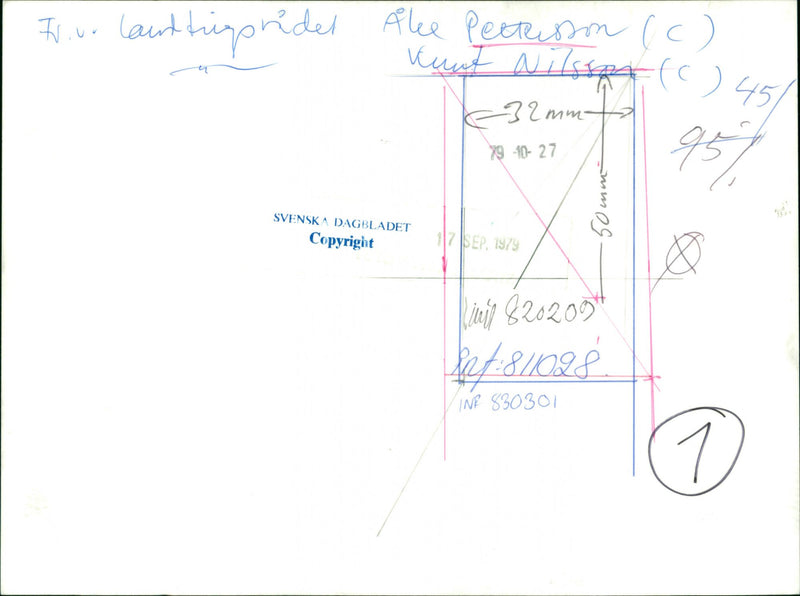 Fr.v. landstingsrådet Åke Pettersson (C)
" Knut Nilsson (C)
45/
95%
32 mm
79-10-27
50 mm
SVENSKA DAGBLADET
Copyright
17 SEP. 1979
820209
Inf: 811028
INR 830301
1